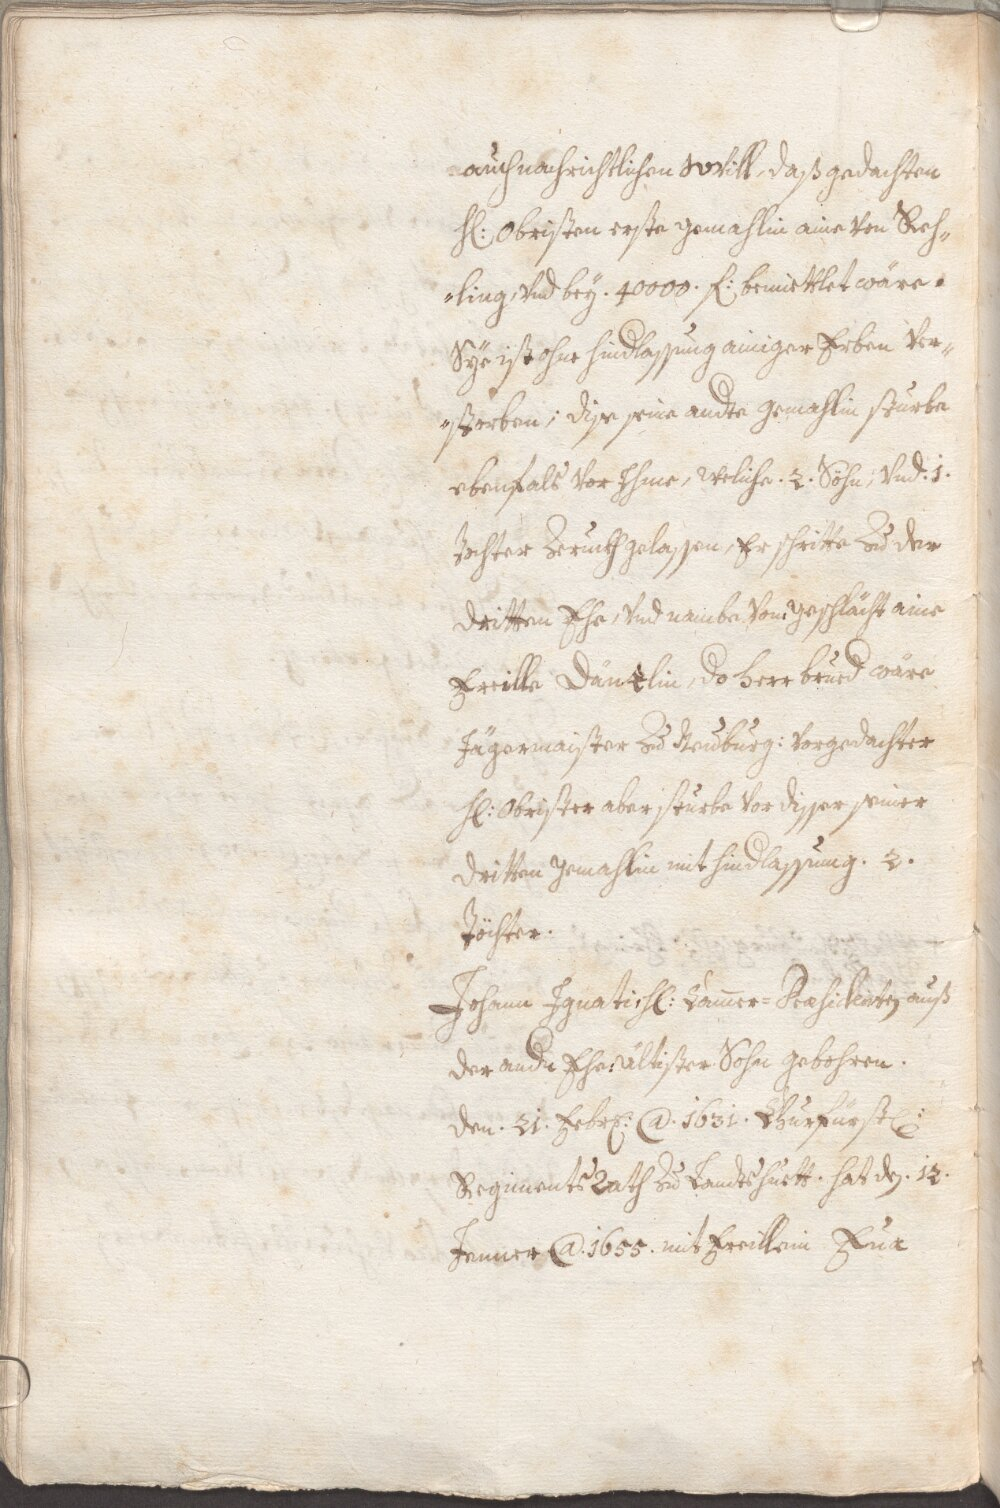 auch nachrichtlichen Will, daß gedachten
H: Obristen erste gemahlin aine von Reh¬
¬ling, vnd bey. 40000. f: bemittlet wäre.
Sye ist ohne hindlassung ainiger Erben ver¬
¬storben; dise seine andte gemahlin sturbe
ebenfals vor Ihme, weliche. 2. Söhn, vnd. 1.
Tochter zerückh gelassen, Er schritte zu der
dritten Ehe, vnd nambe von geschlächt aine
Freille Däntlin, do herr brued wäre
Jägermaister zu Neuburg: vorgedachter
H: Obrister aber sturbe vor disser seiner
dritten gemahlin mit hindlassung. 2.
Töchter.
Johann Ignati H: Cammer= Præsidenten auß
der andn Ehe: ältister Sohn gebohren.
den. 21. Febr: @. 1631. Churfürstl:
Regiments Rath zu Landtshuett. hat den. 12.
Jenner @. 1655. mit Freillein Eua